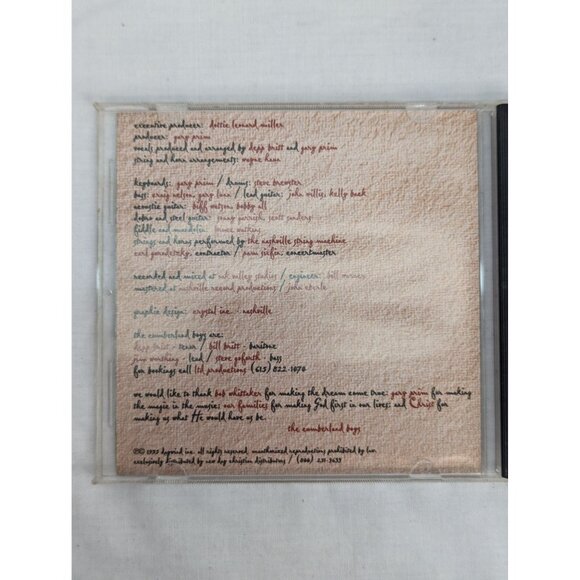 executive producer: dottie leonard miller
producer: gary prim
vocals produced and arranged by depp britt and gary prim
string and horn arrangements: wayne haun
keyboards: gary prim / drums: steve brewster
bass: craig nelson, gary lunn / lead guitar: john willis, kelly back
acoustic guitar: biff watson, bobby all
dobro and steel guitar: sonny garrish, scott sanders
fiddle and mandolin: bruce watkins
strings and horns performed by the nashville string machine
carl gorodetzky, contractor / pam sixfin, concertmaster
recorded and mixed at oak valley studios / engineer: bill
mastered at nashville record productions / john eberle
graphic design: crystal inc. nashville
the cumberland boys are:
depp britt - tenor / bill britt - baritone
jim worthing - lead / steve goforth - bass
for bookings call ltd productions (615) 822-1076
we would like to thank bob whittaker for making the dream come true: gary prim for making
the magic in the music: our families for making God first in our lives: and Christ for
making us what He would have us be.
the cumberland boys
1995 daywind inc. all rights reserved. unauthorized reproductions prohibited by law.
exclusively distributed by new day christian distributors / (800) 251-3633